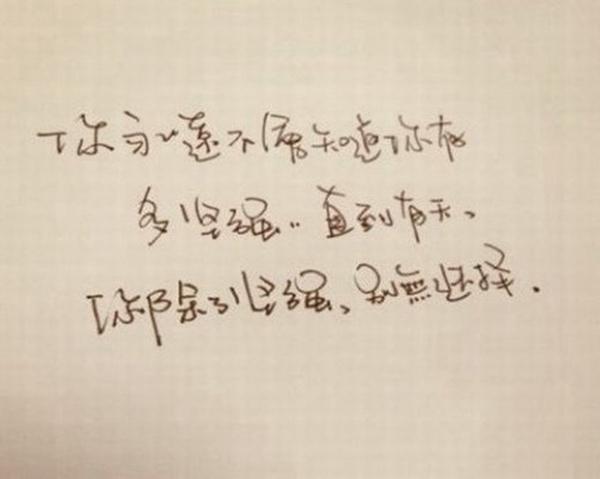 你永遠不僅知道你有
多坚强.. 直到有天、
你除了坚强、别無选择.